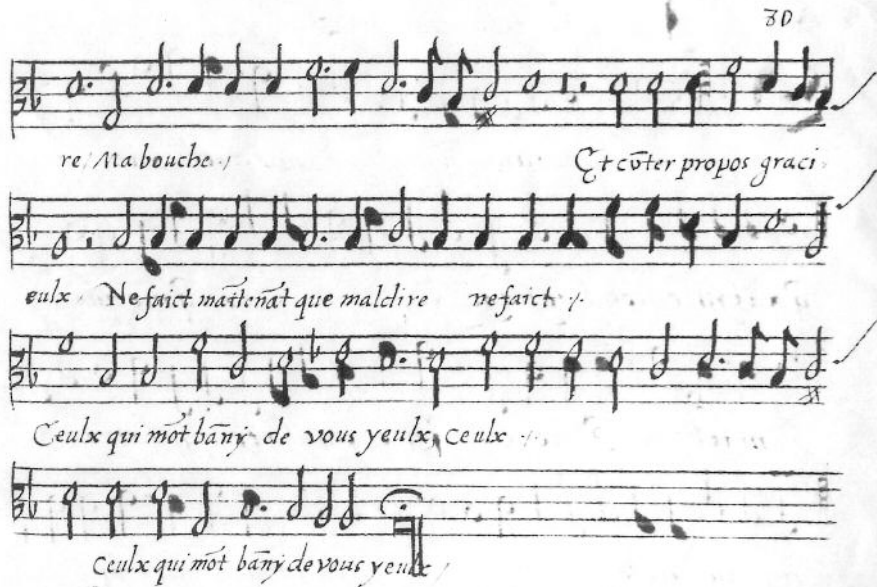 80
re / Ma bouche ·/· Et cōter propos graci
eulx Ne faict maītenāt que maldire ne faict ·/·
Ceulx qui mōt bāny de vous yeulx, Ceulx ·/·
Ceulx qui mōt bāny de vous yeulx /